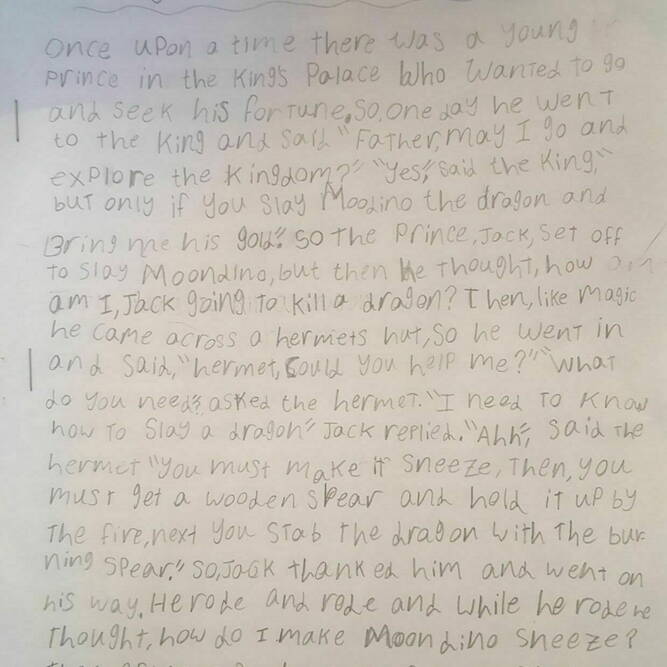 Once upon a time there was a young
Prince in the King's Palace who wanted to go
and seek his fortune, So, one day he went
to the King and said "Father, may I go and
explore the Kingdom?" "Yes," said the King,"
but only if you slay Moodino the dragon and
Bring me his gold." So the Prince, Jack, set off
to slay Moondino, but then he thought, how am
am I, Jack going to kill a dragon? Then, like magic
he came across a hermets hut, So he went in
and said, "hermet, Could you help me?" "What
do you need?, asked the hermet. "I need to know
how to slay a dragon" Jack replied. "Ahh", said the
hermet "You must make it sneeze, Then, you
must get a wooden spear and hold it up by
The fire, next you stab the dragon with the bur
ning spear." So, Jack thanked him and went on
his way. He rode and rode and while he rode he
Thought, how do I make Moondino sneeze?